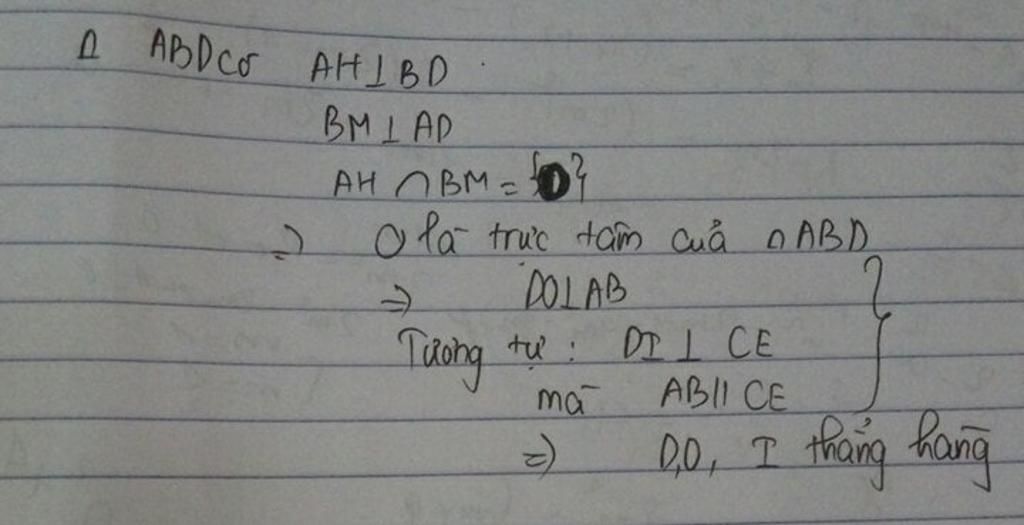 Δ ABD có AH⊥BD
BM⊥AD
AH ∩ BM = {O}
=> O là trực tâm của ΔABD
=> DO⊥AB
Tương tự : DI ⊥ CE
mà AB // CE
=> D,O, I thẳng hàng